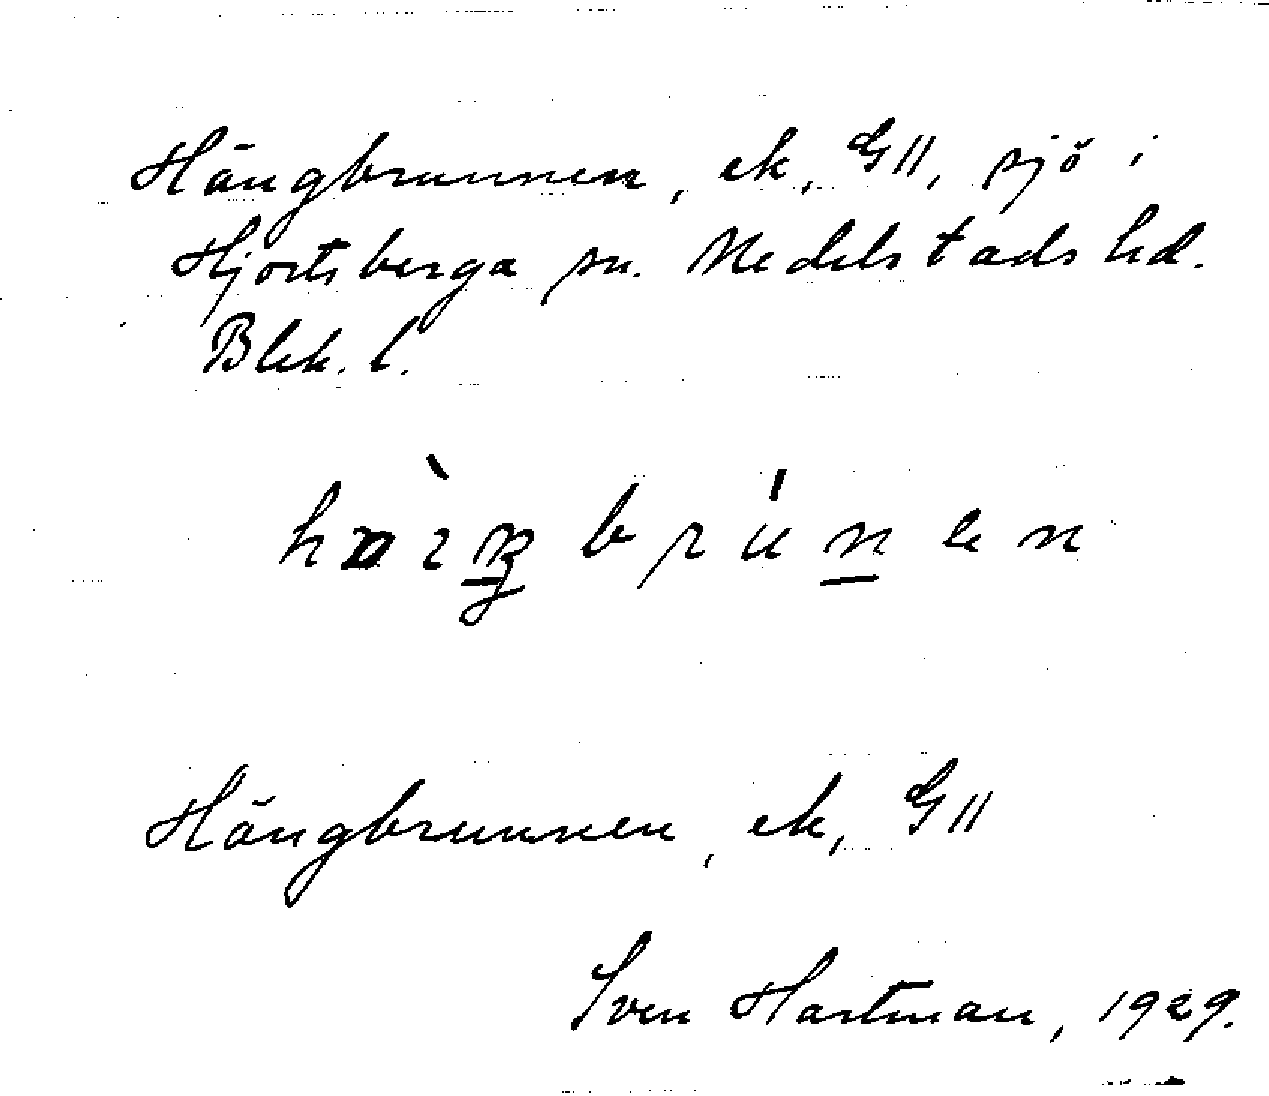 Hängbrunnen, ek, G 11, sjö i
Hjortsberga sn. Medelstads hd.
Blek. l.
Hängbrunnen, ek, G 11
Sven Hartman, 1929.